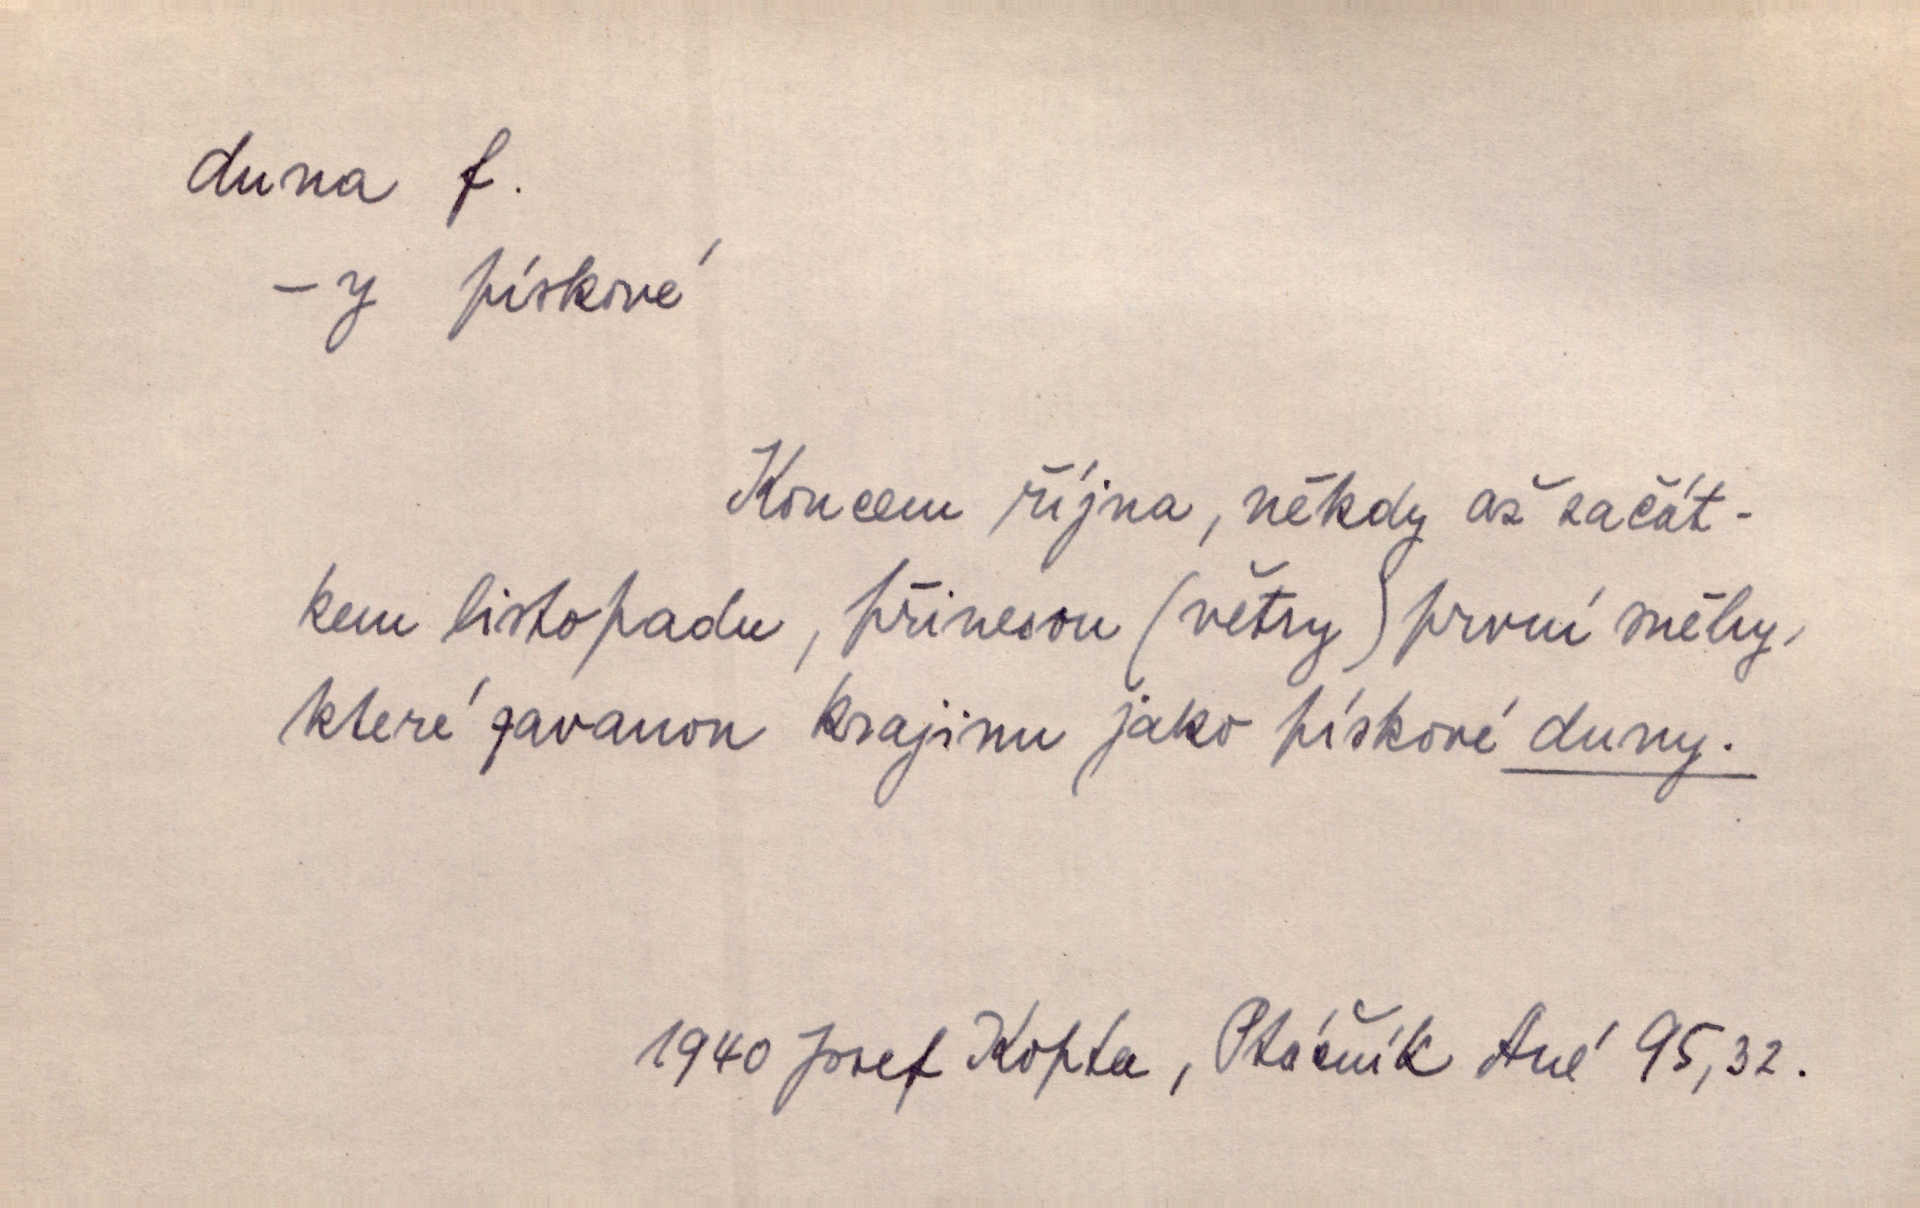 duna f.
– y pískové
Koncem října, někdy až začát-
kem listopadu, přinesou (větry) první sněhy,
které zavanou krajinu jako pískové duny.
1940 Josef Kopta, Ptáčník Ané 95,32.